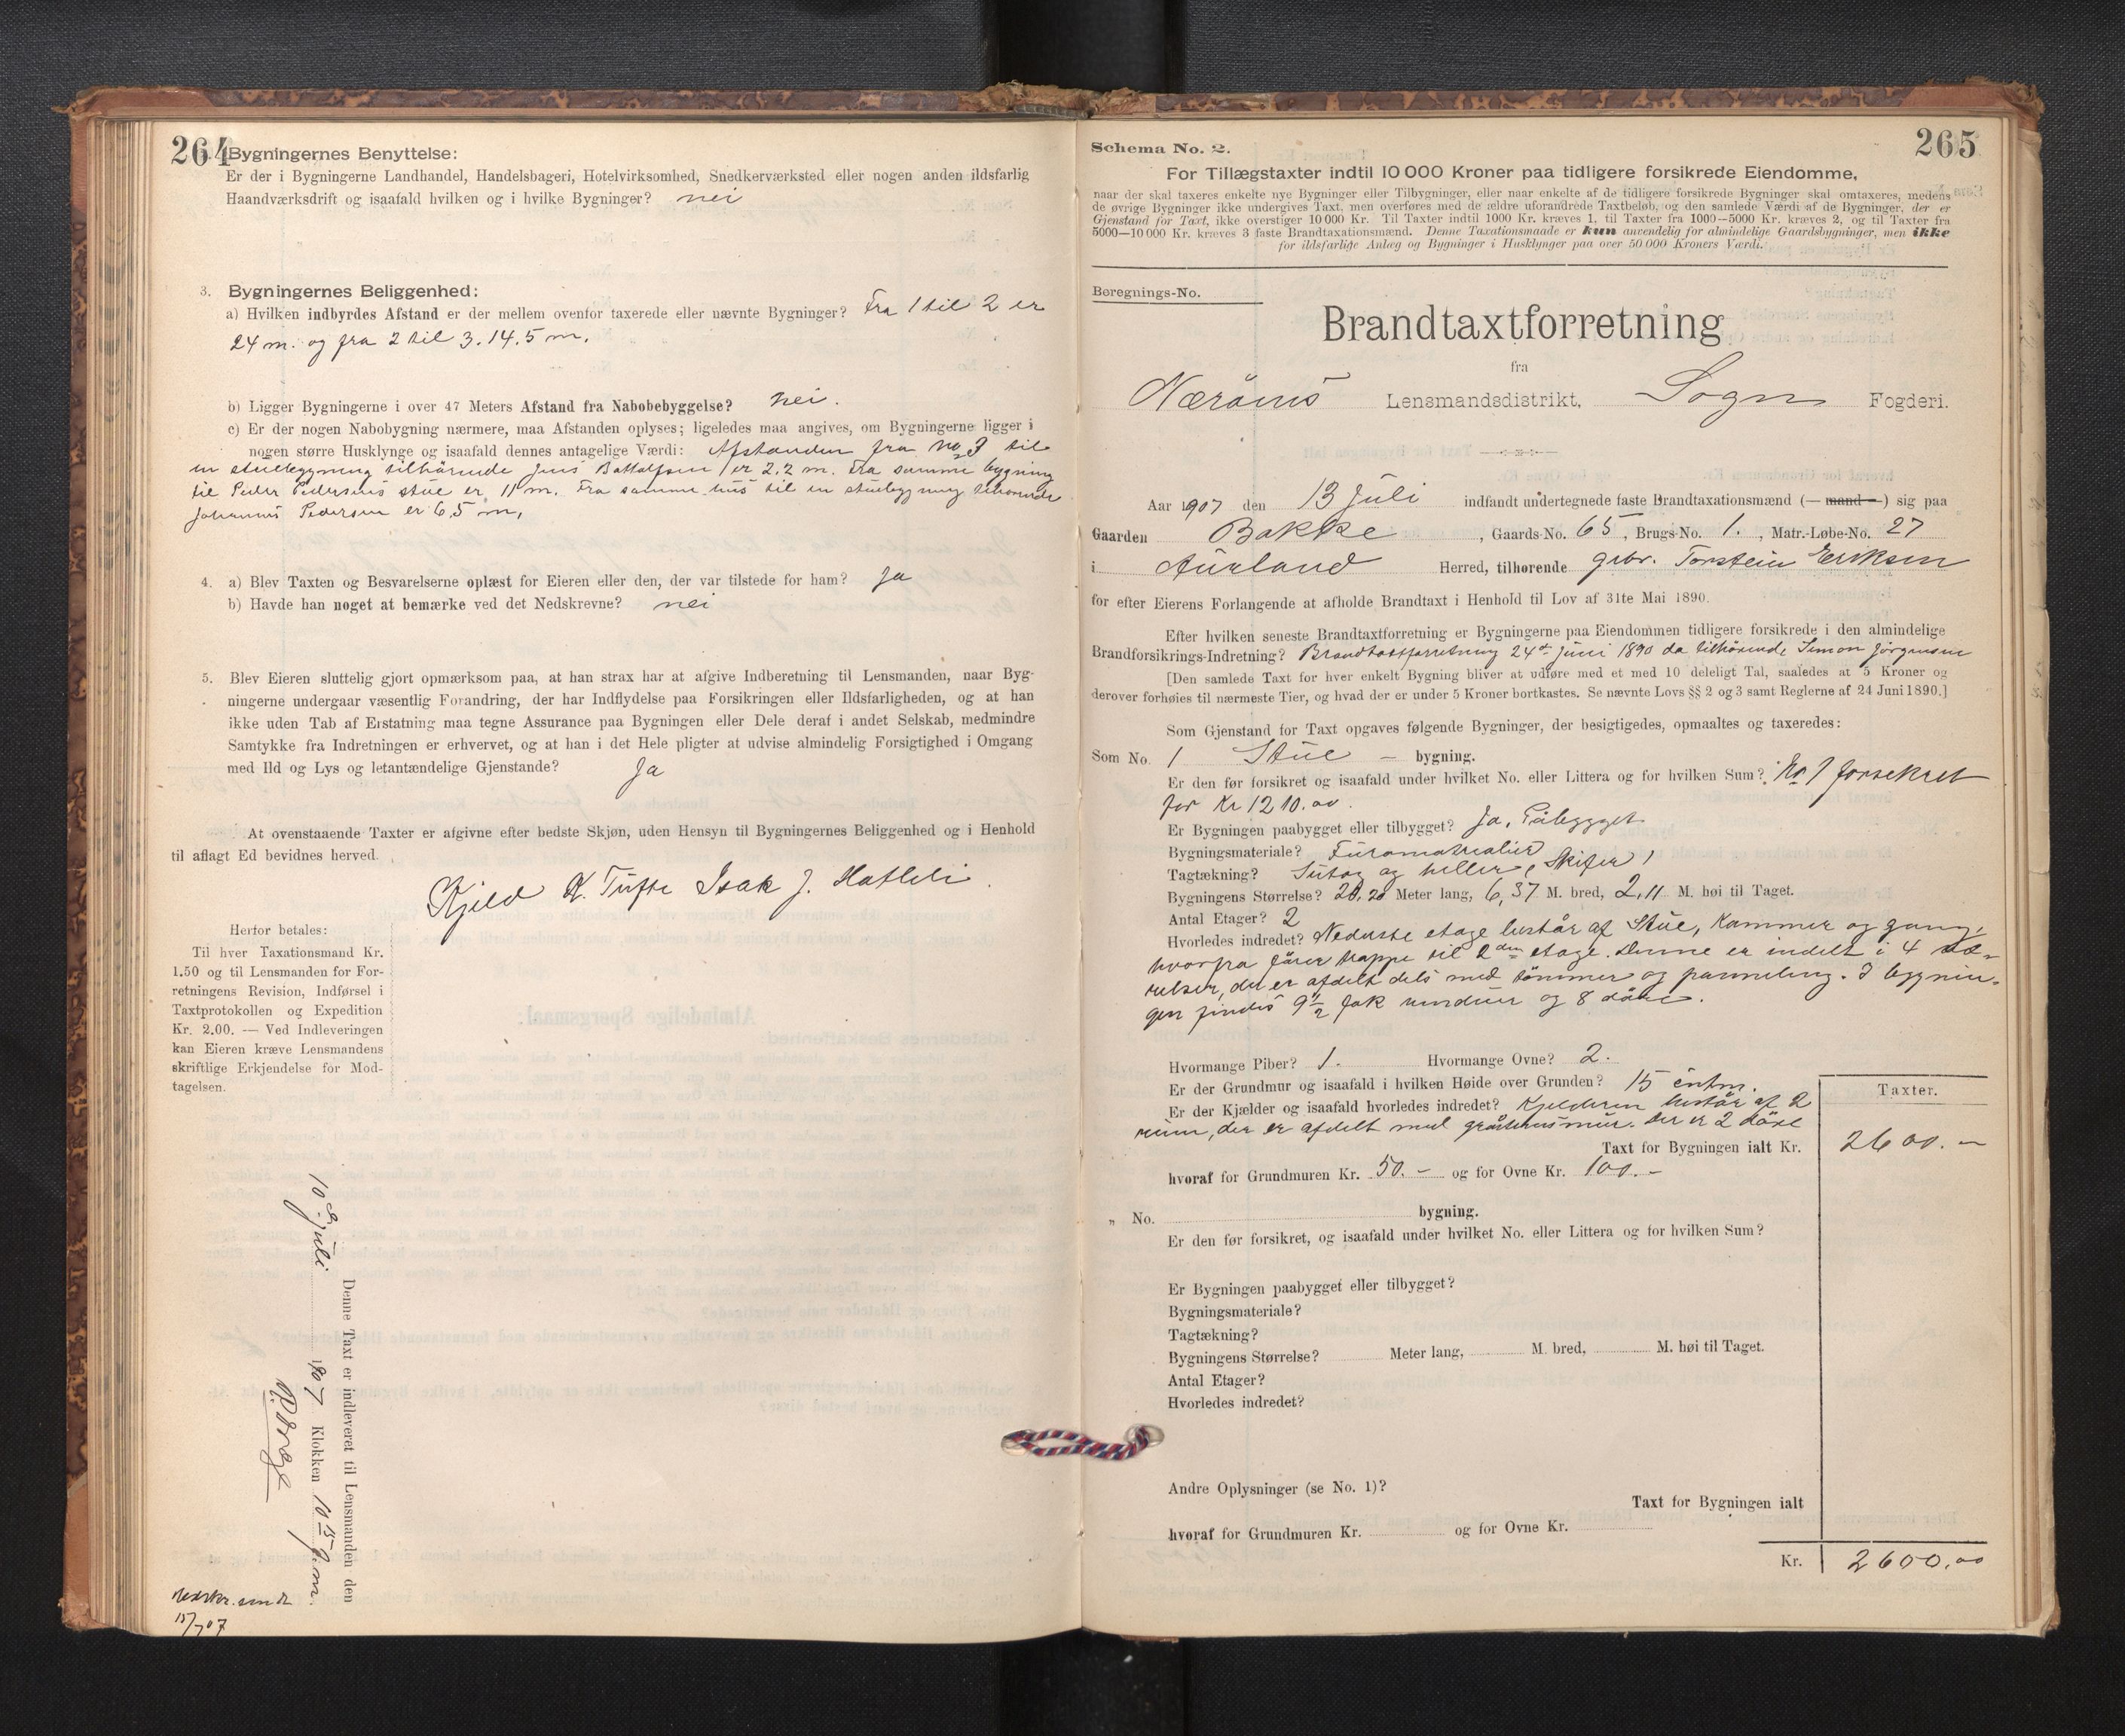 264
Bygningernes Benyttelse:
Er der i Bygningerne Landhandel, Handelsbageri, Hotelvirksomhed, Snedkerværksted eller nogen anden ildsfarlig
Haandværksdrift og isaafald hvilken og i hvilke Bygninger? nei
3. Bygningernes Beliggenhed:
a) Hvilken indbyrdes Afstand er der mellem ovenfor taxerede eller nævnte Bygninger? Fra 1 til 2 er
24 m. og fra 2 til 3. 14.5 m.
b) Ligger Bygningerne i over 47 Meters Afstand fra Nabobebyggelse? nei.
c) Er der nogen Nabobygning nærmere, maa Afstanden oplyses; ligeledes maa angives, om Bygningerne ligger i
nogen større Husklynge og isaafald dennes antagelige Værdi: Afstanden fra No 3 til
en stuebygning tilhörende Jens Bottolfsen er 2,2 m. Fra samme bygning
til Peder Pedersens stue er 11 m. Fra samme hus til en stuebygning tilhörende
Johannes Pedersen er 6,5 m.
4. a) Blev Taxten og Besvarelserne oplæst for Eieren eller den, der var tilstede for ham? Ja
b) Havde han noget at bemærke ved det Nedskrevne? nei
5. Blev Eieren sluttelig gjort opmærksom paa, at han strax har at afgive Indberetning til Lensmanden, naar Byg-
ningerne undergaar væsentlig Forandring, der har Indflydelse paa Forsikringen eller Ildsfarligheden, og at han
ikke uden Tab af Erstatning maa tegne Assurance paa Bygningen eller Dele deraf i andet Selskab, medmindre
Samtykke fra Indretningen er erhvervet, og at han i det Hele pligter at udvise almindelig Forsigtighed i Omgang
med Ild og Lys og letantændelige Gjenstande? Ja
At ovenstaaende Taxter er afgivne efter bedste Skjøn, uden Hensyn til Bygningernes Beliggenhed og i Henhold
til aflagt Ed bevidnes herved.
Kjeld K. Tufte Isak J. Hatleli.
Herfor betales:
Til hver Taxationsmand Kr.
1.50 og til Lensmanden for For-
retningens Revision, Indførsel i
Taxtprotokollen og Expedition
Kr. 2.00. — Ved Indleveringen
kan Eieren kræve Lensmandens
skriftlige Erkjendelse for Mod-
tagelsen.
Denne Taxt er indleveret til Lensmanden den
10de Juli 1907 Klokken 10 15 f.m.
Nedskr. sendt
15/7 07
265
Schema No. 2.
For Tillægstaxter indtil 10 000 Kroner paa tidligere forsikrede Eiendomme,
naar der skal taxeres enkelte nye Bygninger eller Tilbygninger, eller naar enkelte af de tidligere forsikrede Bygninger skal omtaxeres, medens
de øvrige Bygninger ikke undergives Taxt, men overføres med de ældre uforandrede Taxtbeløb, og den samlede Værdi af de Bygninger, der er
Gjenstand for Taxt, ikke overstiger 10 000 Kr. Til Taxter indtil 1000 Kr. kræves 1, til Taxter fra 1000—5000 Kr. kræves 2, og til Taxter fra
5000—10 000 Kr. kræves 3 faste Brandtaxationsmænd. Denne Taxationsmaade er kun anvendelig for almindelige Gaardsbygninger, men ikke
for ildsfarlige Anlæg og Bygninger i Husklynger paa over 50 000 Kroners Værdi.
Beregnings-No.
Brandtaxtforretning
fra
Nærøens Lensmandsdistrikt, Sogn Fogderi.
Aar 1907 den 13 Juli indfandt undertegnede faste Brandtaxationsmænd (— mand —) sig paa
Gaarden Bakke, Gaards-No. 65, Brugs-No. 1., Matr.-Løbe-No. 27
i Aurland Herred, tilhørende grbr. Torstein Eriksen
for efter Eierens Forlangende at afholde Brandtaxt i Henhold til Lov af 31te Mai 1890.
Efter hvilken seneste Brandtaxtforretning er Bygningerne paa Eiendommen tidligere forsikrede i den almindelige
Brandforsikrings-Indretning? Brandtaxtforretning 24de Juni 1890 da tilhörende Simon Jörgensen
[Den samlede Taxt for hver enkelt Bygning bliver at udføre med et med 10 deleligt Tal, saaledes at 5 Kroner og
derover forhøies til nærmeste Tier, og hvad der er under 5 Kroner bortkastes. Se nævnte Lovs §§ 2 og 3 samt Reglerne af 24 Juni 1890.]
Som Gjenstand for Taxt opgaves følgende Bygninger, der besigtigedes, opmaaltes og taxeredes:
Som No. 1 Stue — bygning.
Er den før forsikret og isaafald under hvilket No. eller Littera og for hvilken Sum? No 1 forsekret
for Kr 1210.00.
Er Bygningen paabygget eller tilbygget? Ja, Påbygget
Bygningsmateriale? Furumatrealier
Tagtækning? og heller, Skifer
Bygningens Størrelse? 20,20 Meter lang, 6,37 M. bred, 2,11 M. høi til Taget.
Antal Etager? 2
Hvorledes indredet? Nederste etage består af Stue, Kammer og gang,
hvorfra förer trappe til 2den etage. Denne er indelt i 4 væ-
relser, der er afdelt dels med tömmer og panneling. I bygnin-
gen findes 9 1/2 fak vinduer og 8 döre.
Hvormange Piber? 1. Hvormange Ovne? 2.
Er der Grundmur og isaafald i hvilken Høide over Grunden? 15 centm.
Er der Kjælder og isaafald hvorledes indredet? Kjelderen består af 2
rum, der er afdelt med gråstensmur. Der er 2 döre
Taxter.
Taxt for Bygningen ialt Kr. 2600.—
hvoraf for Grundmuren Kr. 50.— og for Ovne Kr. 100.—
„ No. bygning.
Er den før forsikret, og isaafald under hvilket No. eller Littera og for hvilken Sum?
Er Bygningen paabygget eller tilbygget?
Bygningsmateriale?
Tagtækning?
Bygningens Størrelse? Meter lang, M. bred, M. høi til Taget.
Antal Etager?
Hvorledes indredet?
Andre Oplysninger (se No. 1)?
Taxt for Bygningen ialt
hvoraf for Grundmuren Kr. og for Ovne Kr.
Kr. 2600.00